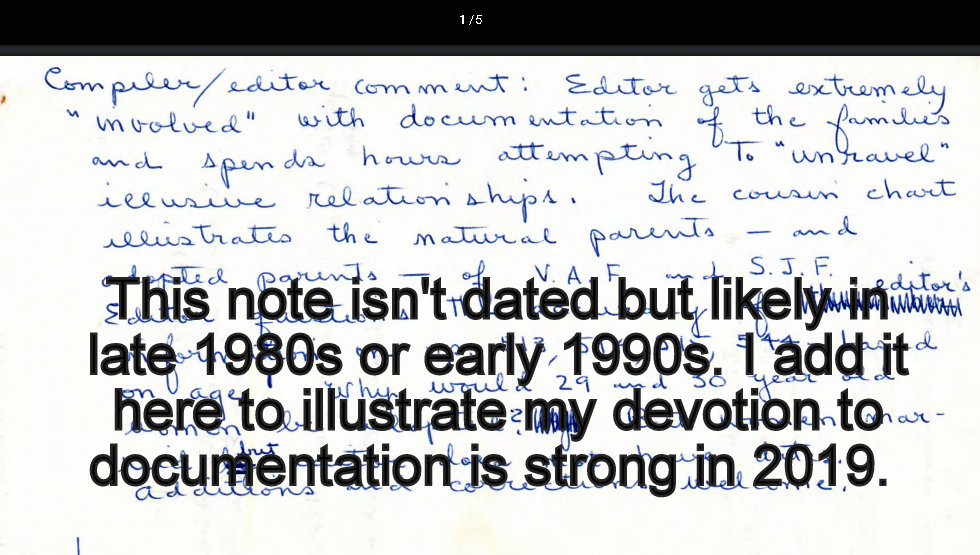 1/5
Compiler/editor comment: Editor gets extremely
"involved" with documentation of the families
and spends hours attempting to "unravel"
illusive relationships. The cousin chart
illustrates the natural parents — and
adopted parents — of V.A.F. and S.J.F.
editor's
Editor questions The
This note isn't dated but likely in
late 1980s or early 1990s. I add it
here to illustrate my devotion to
documentation is strong in 2019.
544 based
on age. Why would 29 and 30 year old
women be
but
additions and corrections welcome.